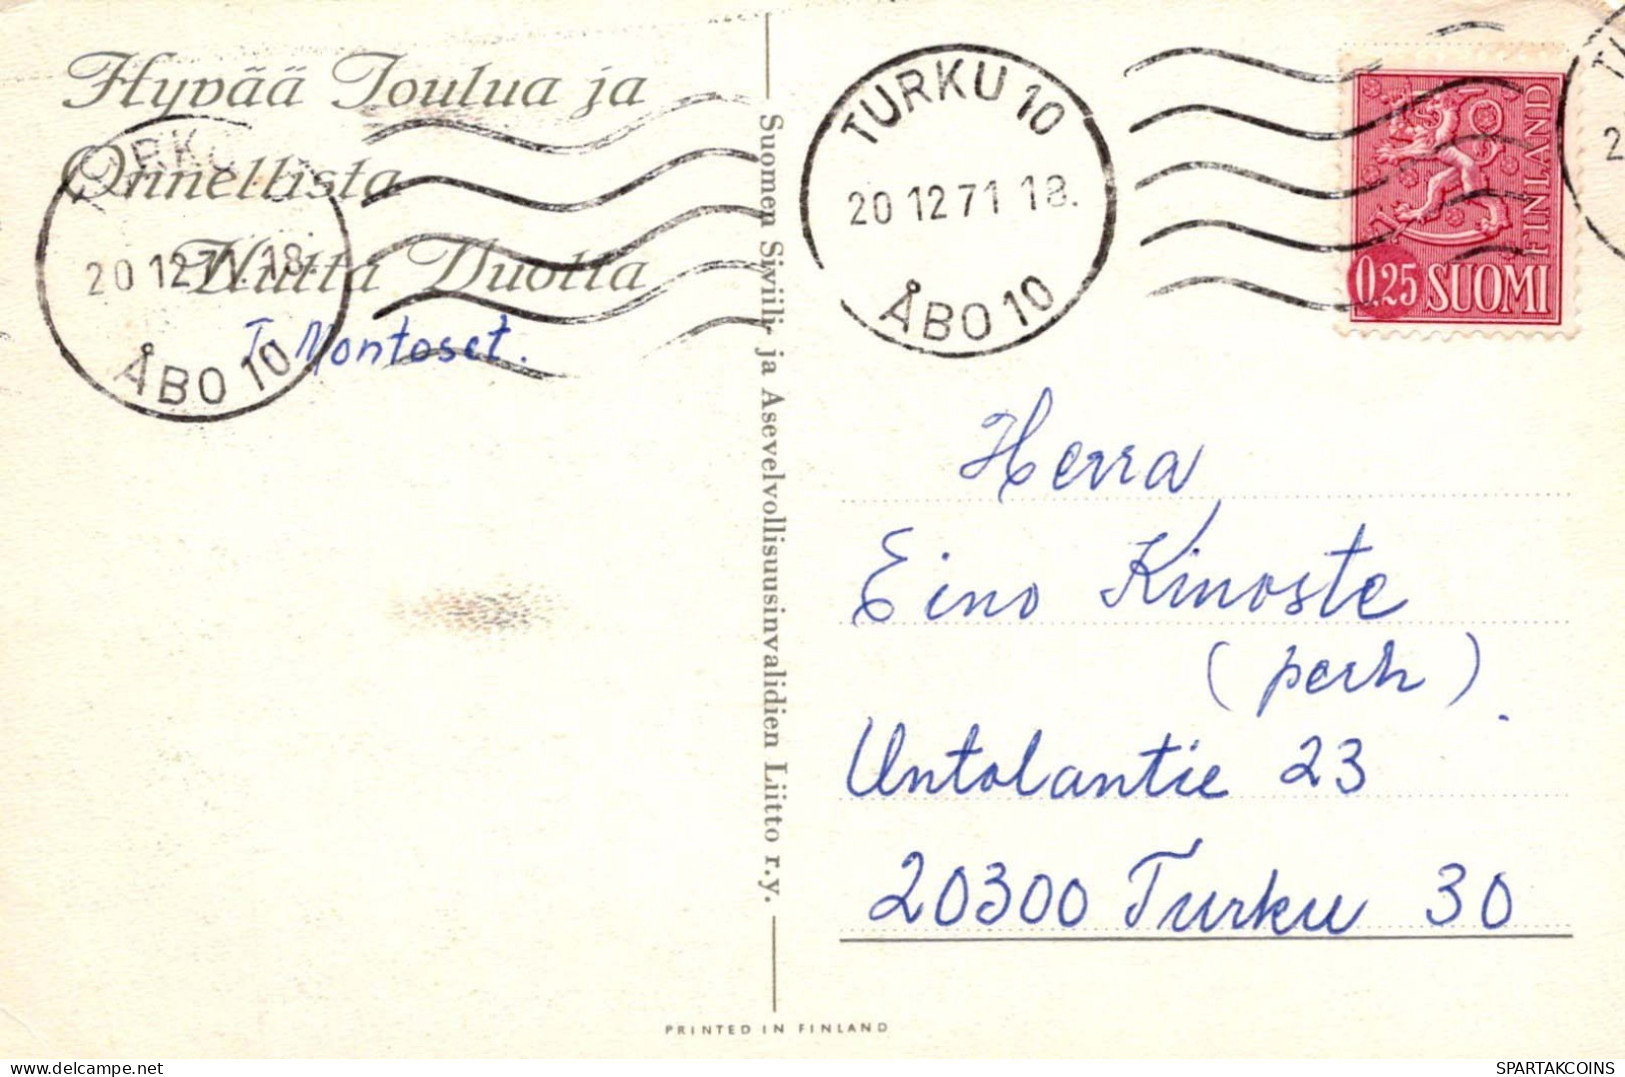 Hyvää Joulua ja
Onnellista
Uutta Vuotta
T. Montoset.
TURKU 10
20 12 71 18.
ÅBO 10
TURKU
20 12 71 18.
ÅBO 10
FINLAND
0.25 SUOMI
Suomen Siviili- ja Asevelvollisuusinvalidien Liitto r.y.
Herra
Eino Kinoste
(perh)
Untolantie 23
20300 Turku 30
PRINTED IN FINLAND
www.delcampe.net
tjw
SPARTAKCOINS